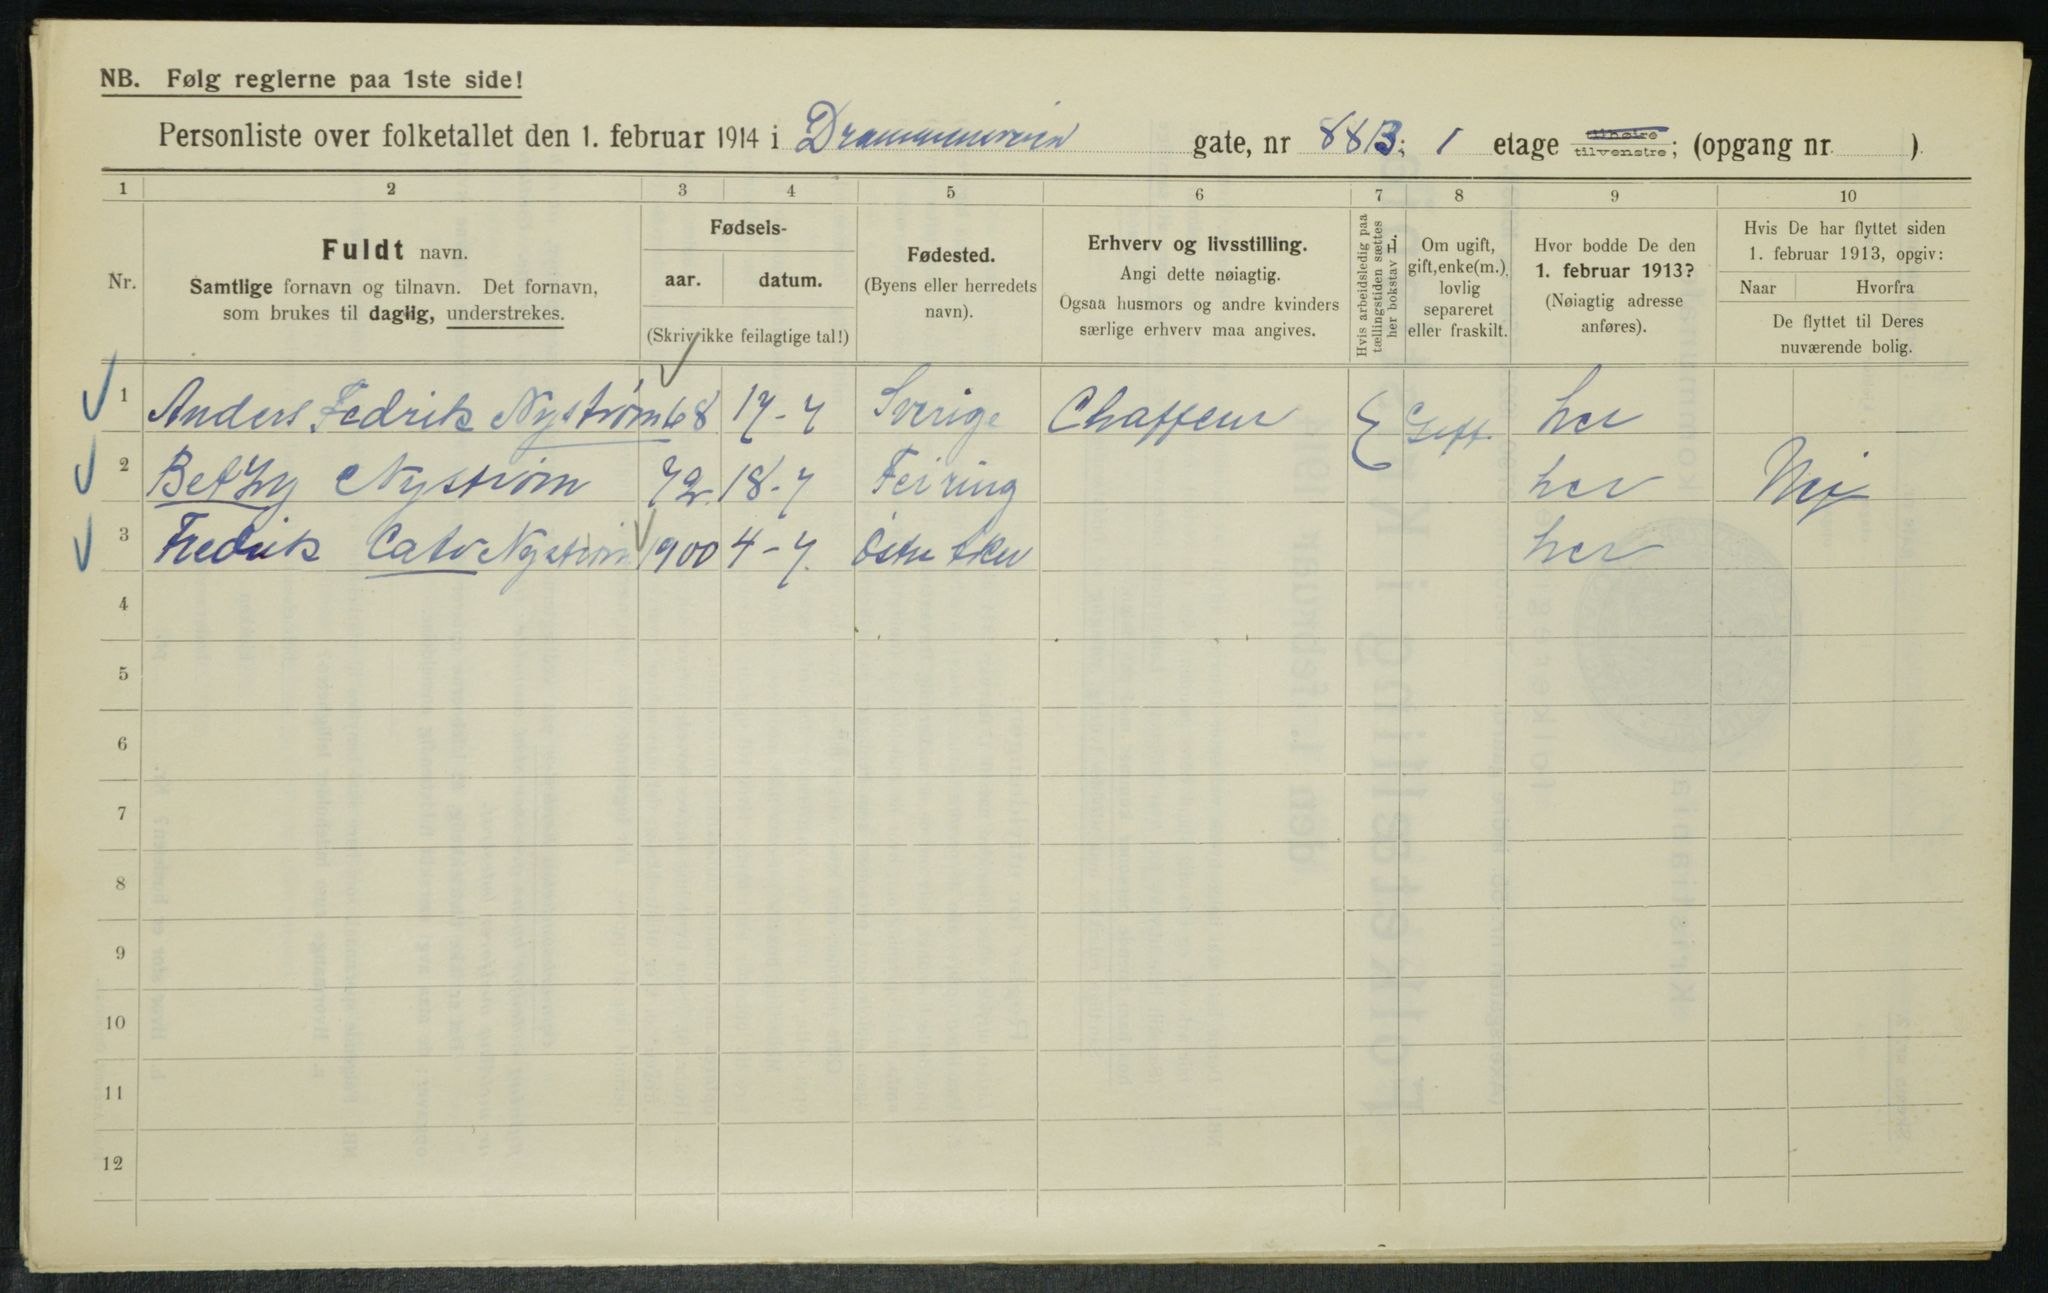 NB. Følg reglerne paa 1ste side!
Personliste over folketallet den 1. februar 1914 i Drammensveien gate, nr 88B; 1 etage tilhøire tilvenstre; (opgang nr. )
1 2 3 4 5 6 7 8 9 10
Nr.
Fuldt navn.
Samtlige fornavn og tilnavn. Det fornavn,
som brukes til daglig, understrekes.
Fødsels-
aar. datum.
(Skriv ikke feilagtige tal!)
Fødested.
(Byens eller herredets
navn).
Erhverv og livsstilling.
Angi dette nøiagtig.
Ogsaa husmors og andre kvinders
særlige erhverv maa angives.
Hvis arbeidsledig paa
tællingstiden sættes
her bokstav L
Om ugift,
gift, enke(m.),
lovlig
separeret
eller fraskilt.
Hvor bodde De den
1. februar 1913?
(Nøiagtig adresse
anføres).
Hvis De har flyttet siden
1. februar 1913, opgiv:
Naar Hvorfra
De flyttet til Deres
nuværende bolig.
1 Anders Fedrik Nystrøm 68 17-7 Sverige Chaffeur E Gift her
2 Bethzy Nystrøm 72 18-7 Feiring her Nej
3 Fredrik Cato Nystrøm 1900 4-7 Østre Aker her
4
5
6
7
8
9
10
11
12